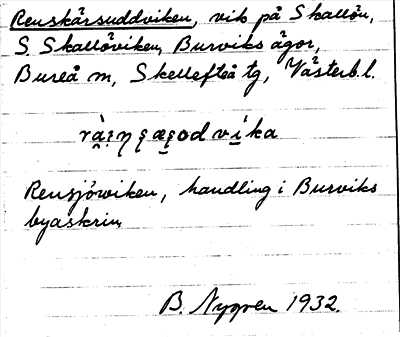 Renskärsuddviken, vik på Skallön,
S. Skallöviken, Burviks ägor,
Bureå m, Skellefteå tg, Västerb.l.
Rensjöwiken, handling i Burviks
byaskrin.
B. Nygren 1932.